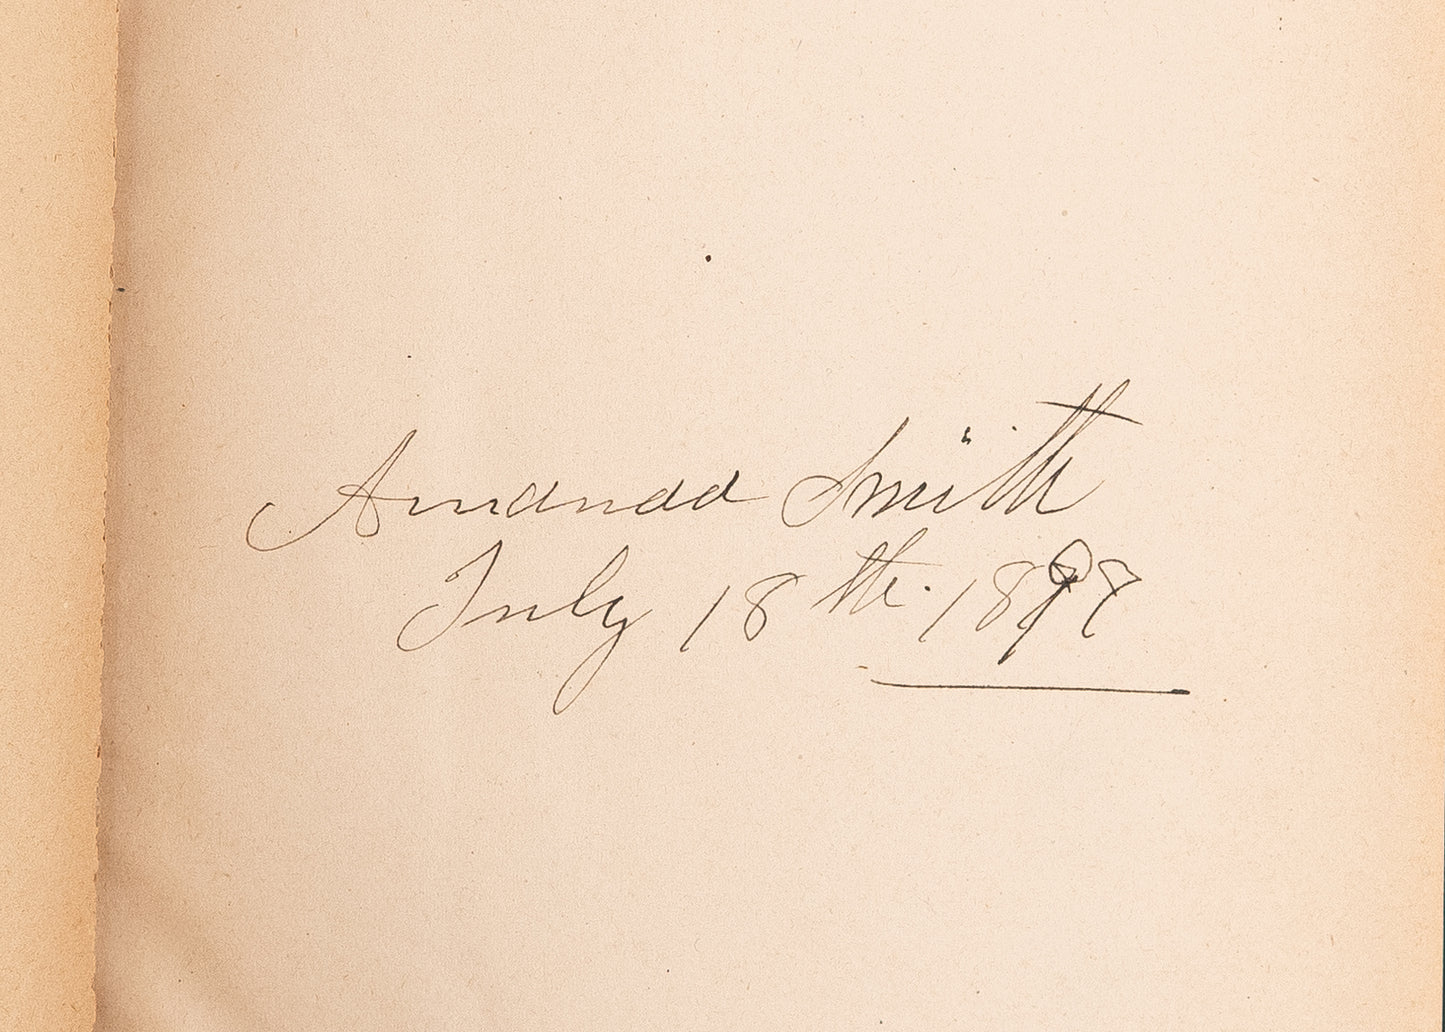 Amanda Smith
July 18th. 1897